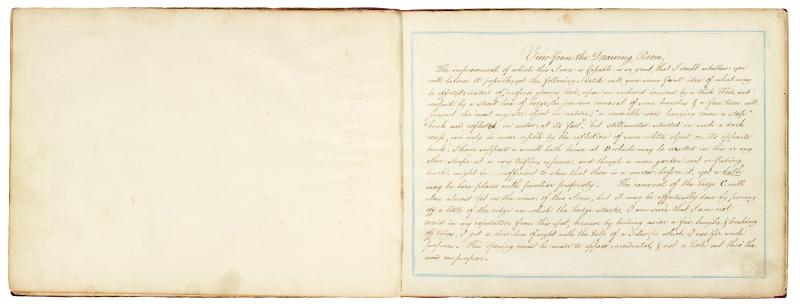 View from the Drawing Room,
The improvement of which this Scene is Capable is so great, that I doubt whether you
will believe it possible, yet the following Sketch will give some faint idea of what may
be effected: instead of confined gloomy look, upon an orchard bounded by a thick Wood, and
confined by a strait line of hedge, the judicious removal of some branches & a few trees will
present the most myster effect in nature, "a venerable wood hanging down a steep
"bank and reflected in water, at its foot", but still water situated in such a dark
recess, can only be made visible by the reflection of some white object on its opposite
bank. I have suppos'd a small bath house at D which may be erected in this or any
other shape at a very trifling expence, and though a mere garden seat or fishing
bench, might be sufficient to shew that there is a mirror before it, yet a bath
may be here placed with peculiar propriety. The removal of the hedge C will
alone almost let in the view, of this Scene, but it may be effectually done by paring
off a little of the ridge on which the hedge stands, I am sure that I am not
in my expectations from this spot, because by bending aside a few boughs, & breaking
off twigs, I got a clear line of sight with the help of a Telescope which I use for such
purposes. This opening must be made to appear accidental, & not a hole cut thro' the
wood on purpose.